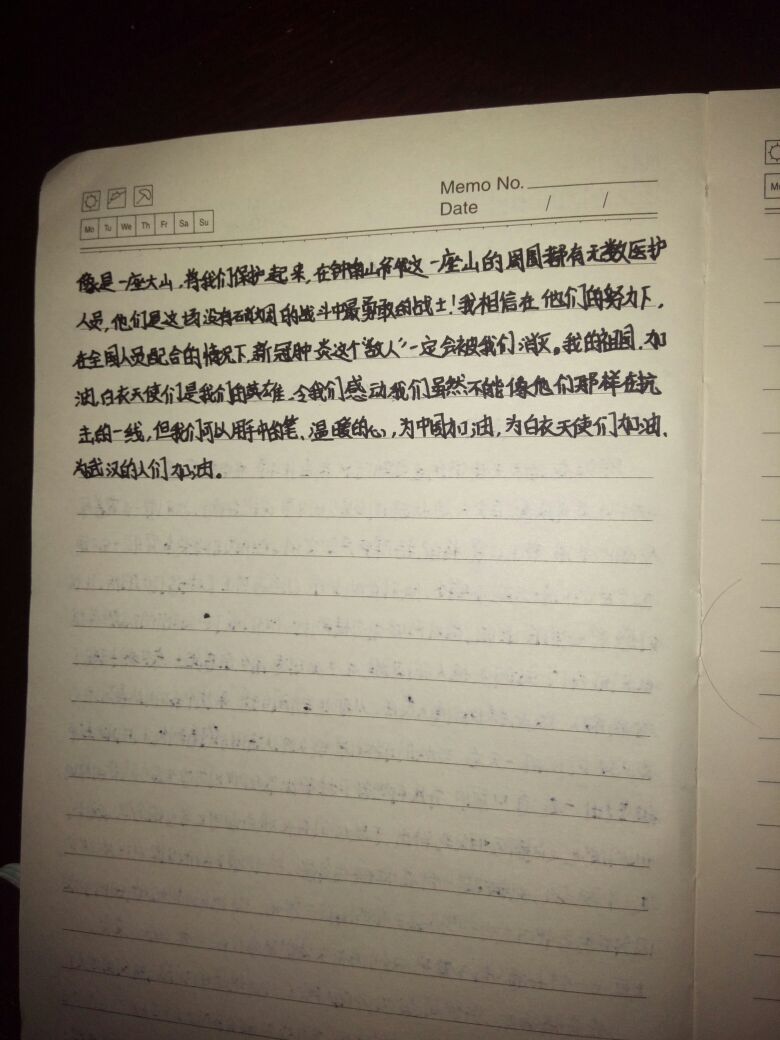 Memo No.
Date / /
Mo Tu We Th Fr Sa Su
像是一座大山,将我们保护起来,在钟南山爷爷这一座山的周围都有无数医护
人员,他们是这场没有硝烟的战斗中最勇敢的战士!我相信在他们的努力下,
在全国人员配合的情况下,新冠肺炎这个“敌人”一定会被我们消灭。我的祖国,加
油,白衣天使们是我们的英雄,令我们感动我们虽然不能像他们那样在抗
击的一线,但我们可以用手中的笔、温暖的心,为中国加油,为白衣天使们加油,
为武汉的人们加油。
Mo